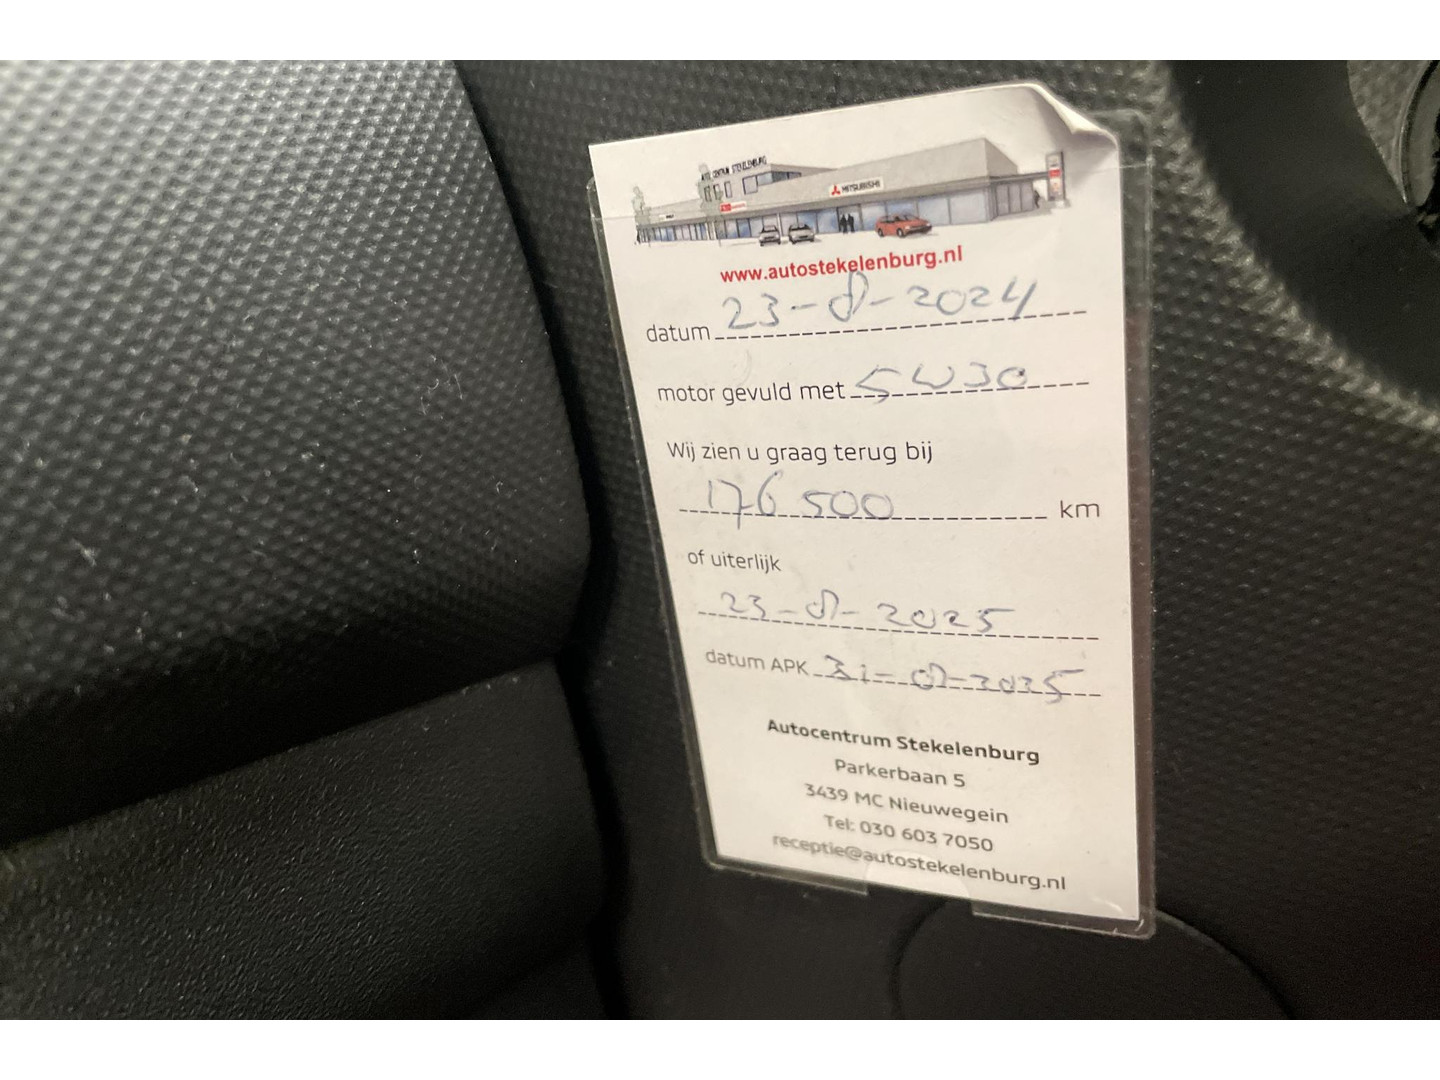 AUTO CENTRUM STEKELENBURG
MITSUBISHI
www.autostekelenburg.nl
datum 23-8-2024
motor gevuld met 5W30
Wij zien u graag terug bij
176 500 km
of uiterlijk
23-8-2025
datum APK 31-8-2025
Autocentrum Stekelenburg
Parkerbaan 5
3439 MC Nieuwegein
Tel: 030 603 7050
receptie@autostekelenburg.nl